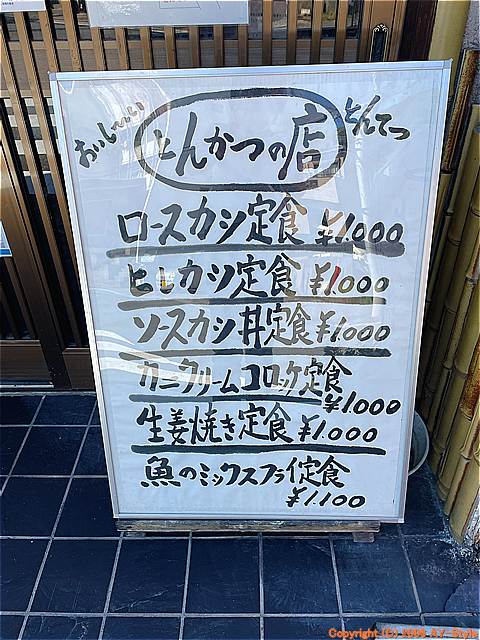 おいしーい
とんかつの店
とんてつ
ロースカツ定食 ¥1.000
ヒレカツ定食 ¥1.000
ソースカツ丼定食 ¥1.000
カニクリームコロッケ定食
¥1.000
生姜焼き定食 ¥1.000
魚のミックスフライ定食
¥1.100